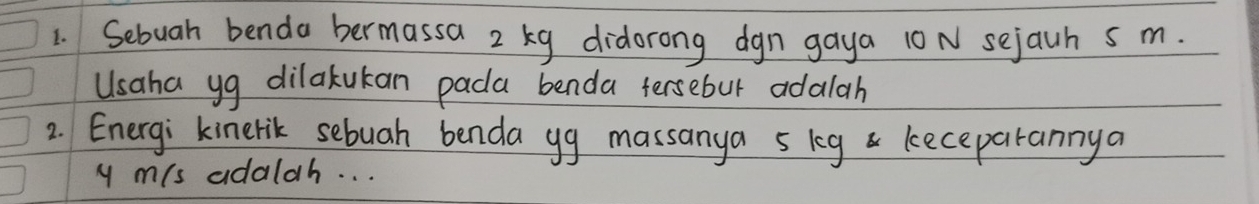 1. Sebuah benda bermassa 2 kg didorong dgn gaya 10 N sejauh 5 m.
Usaha yg dilakukan pada benda tersebut adalah
2. Energi kinetik sebuah benda yg massanya 5 kg & kecepatannya
4 m/s adalah...